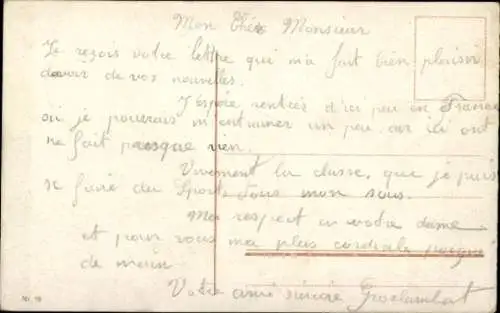 Mon Cher Monsieur
Je reçois votre lettre qui ma fait bien plaisir
davoir de vos nouvelles.
J'espère rentrer d'ici peu en France
où je pourrais m'entrainer un peu car ici ont
ne fait presque rien.
Vivement la classe, que je puis
se faire du Sport tous mon sous.
Mes respect a votre dame
et pour vous ma plus cordiale poigne
de main
Votre ami sincère
Nr. 18